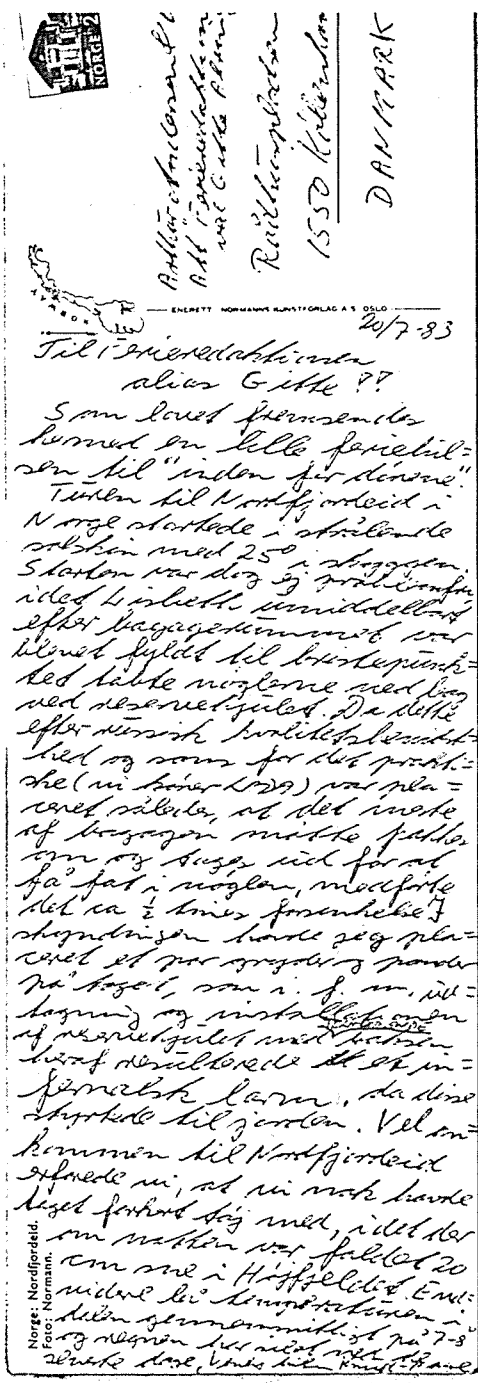 NORGE 2
Att Ferieredaktionen
1550 København
DANMARK
NORGE
ENERETT NORMANNS KUNSTFORLAG A S OSLO
20/7-83
Til Ferieredaktionen
alias Gitte ??
Som lovet fremsendes
hermed en lille feriehil=
sen til "inden for dørene"
Turen til Nordfjordeid i
Norge startede i strålende
solskin med 25° i skyggen.
Starten var dog ej problemfri
idet Lisbeth umiddelbart
efter bagagerummet var
blevet fyldt til bristepunk=
tet tabte nøglerne ned bag
ved reservehjulet. Da dette
efter russisk kvalitetsbevidst=
hed og sans for det prakti=
ske (vi kører LADA) var pla=
ceret således, at det meste
af bagagen måtte pakkes
om og tages ud for at
få fat i nøglen, medførte
det ca ½ times forsinkelse. I
skyndingen havde jeg pla=
ceret et par gryder og pander
på taget, som i. f. m. ud=
tagning og installationen
af reservehjulet med
heraf resulterede i et in=
fernalsk larm, da disse
styrtede til jorden. Vel an=
kommen til Nordfjordeid
erfarede vi, at vi nok havde
taget forkert tøj med, idet der
om natten var faldet 20
cm sne i Højfjeldet. End=
videre lå temperaturen i
dalen gennemsnitligt på 7-8°
og regnen har silet ned de
seneste dage. Venlig hilsen
Norge: Nordfjordeid.
Foto: Normann.